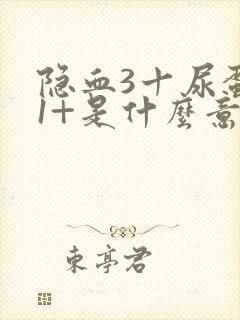 隐血3十尿蛋
1+是什麼意
東亭君